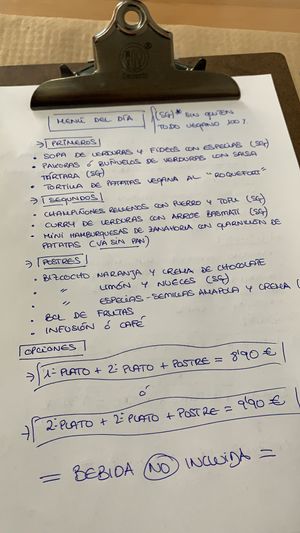 MENÚ DEL DÍA (SG)* SIN GLUTEN
TODO VEGANO 100%
→ PRIMEROS
• SOPA DE VERDURAS Y FIDEOS CON ESPECIAS (SG)
• PAKORAS ó BUÑUELOS DE VERDURAS CON SALSA
TÁRTARA (SG)
• TORTILLA DE PATATAS VEGANA AL "ROQUEFORT"
→ SEGUNDOS
• CHAMPIÑONES RELLENOS CON PUERRO Y TOFU (SG)
• CURRY DE VERDURAS CON ARROZ BASMATI (SG)
• MINI HAMBURGUESAS DE ZANAHORIA CON GUARNICIÓN DE
PATATAS (VA SIN PAN)
→ POSTRES
• BIZCOCHO NARANJA Y CREMA DE CHOCOLATE
• " LIMÓN Y NUECES (SG)
• " ESPECIAS-SEMILLAS AMAPOLA Y CREMA (
• BOL DE FRUTAS
• INFUSIÓN ó CAFÉ
OPCIONES
→ 1º PLATO + 2º PLATO + POSTRE = 8'90 €
ó
→ 2º PLATO + 2º PLATO + POSTRE = 9'90 €
= BEBIDA NO INCLUIDA =